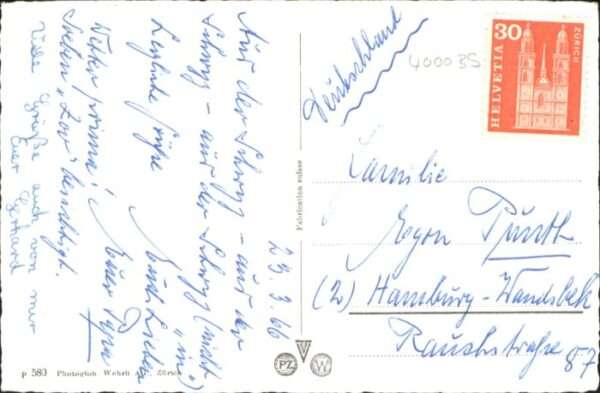 23.3.66
Aus der Schweiz – aus der
Schweiz – aus der Schweiz (nicht
"in")
herzliche Grüße Euch Lieben
Wetter prima!
Soeben "Zoo" besichtigt.
Euer
Viele Grüße auch von mir
Euer Gerhard
Deutschland
400035
30
HELVETIA
ZÜRICH
Familie
Egon
(2) Hamburg-Wandsbek
Rauchstraße 87
Fabrication suisse
PZ W
P 580 Photoglob Wehrli A.G. Zürich